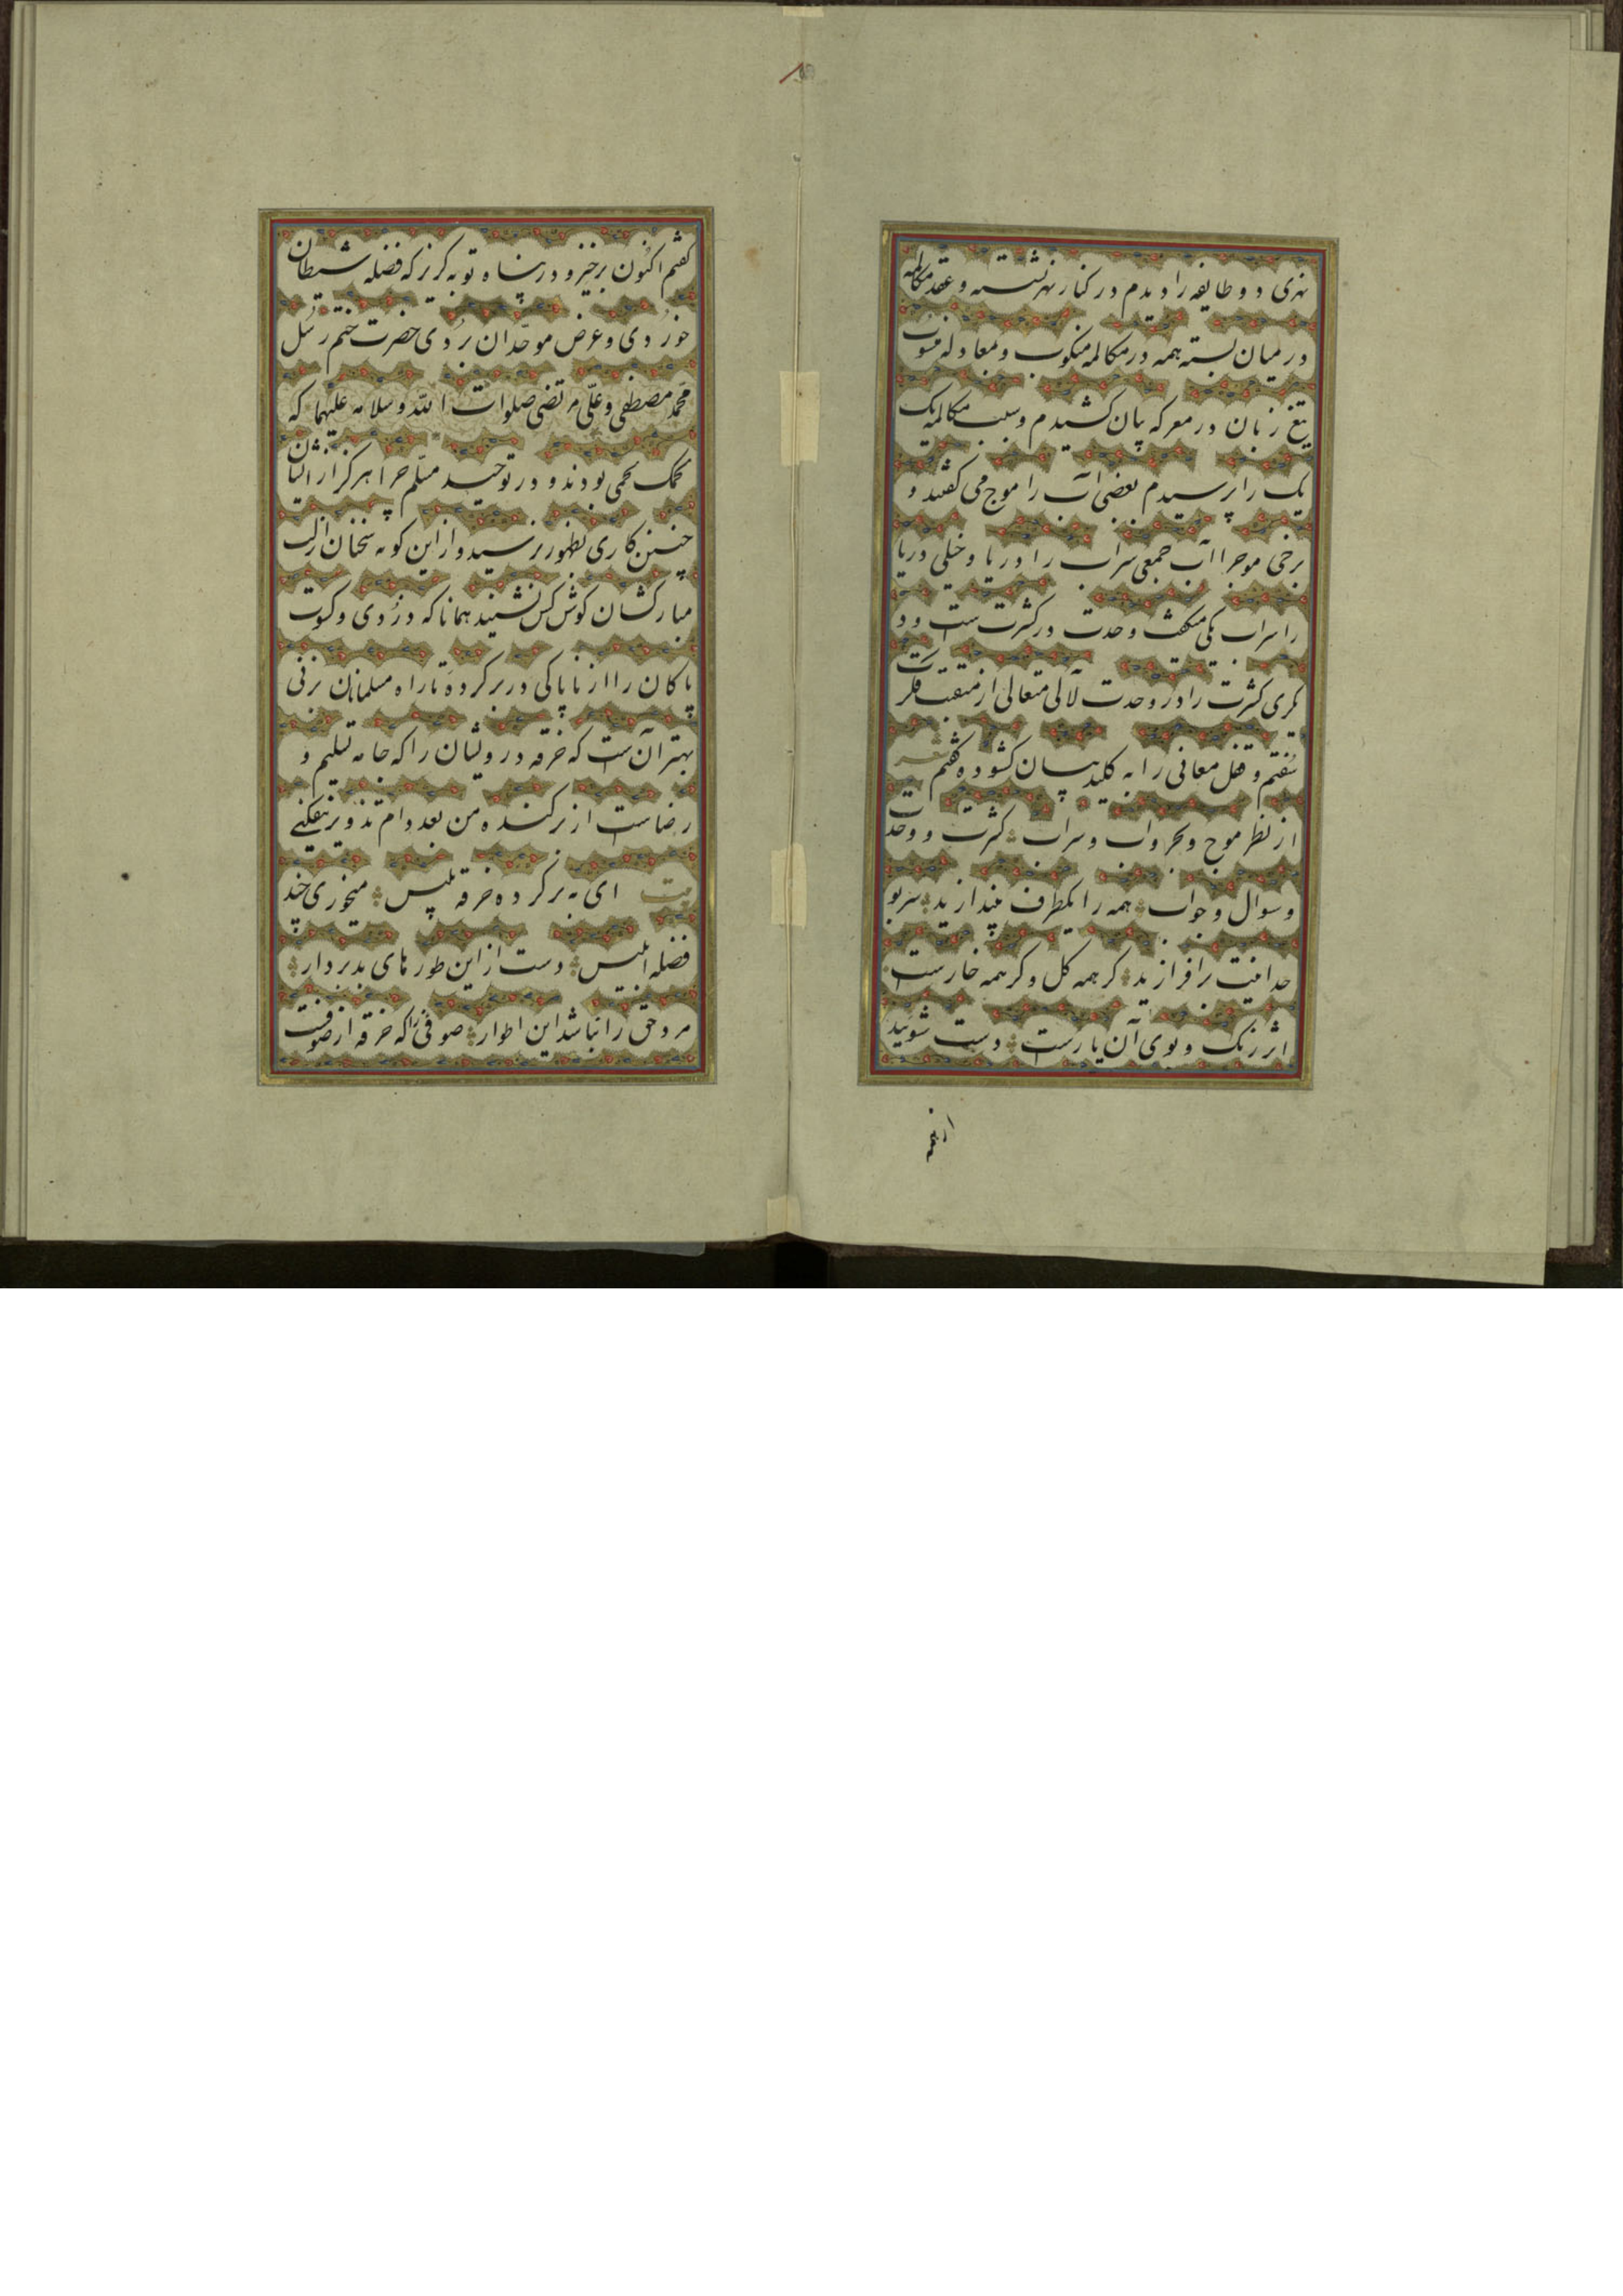 نهری دو طایفه را دیدم در کنار نهر نشسته و عقد مکالمه
در میان بسته همه در مکالمه منکوب و معادله منسوب
تیغ زبان در معرکه بیان کشیدم و سبب مکالمه یک
یک را پرسیدم بعضی آب را موج می کفتند و
برخی موج را آب جمعی سراب را دریا و خیلی دریا
را سراب یکی میکفت وحدت در کثرت ست و د
یکری کثرت را در وحدت لآلی متعالی از مثقب فکرت
سفتم و قفل معانی را به کلید بیان کشوده کفتم شعر
از نظر موج و بحر و آب و سراب کثرت و وحدت
و سوال و جواب همه را یکطرف بیندازید سر بو
حدانیت برافرازید کر همه کل و کر همه خارست
اثر رنک و بوی آن یارست دست شوئید
از همه
کفتم اکنون برخیز و در پناه توبه کریز که فضله شیطان
خوردی و عرض موحدان بردی حضرت ختم رسل
محمد مصطفی و علی مرتضی صلوات الله وسلامه علیهما که
لحمک لحمی بودند و در توحید مسلم چرا هرکز از ایشان
چنین کاری بظهور نرسید و از این کونه سخنان از لب
مبارکشان کوش کس نشنید همانا که دزدی و کسوت
پاکان را از ناپاکی در بر کرده تا راه مسلمانان بزنی
بهتر آن ست که خرقه درویشان را که جامه تسلیم و
رضاست از بر کنده من بعد دام تذویر نیفکنی
بیت ای به بر کرده خرقه تلبیس میخوری چند
فضله ابلیس دست از این طورهای بد بردار
مرد حق را نباشد این اطوار صوفی را که خرقه از صوفست